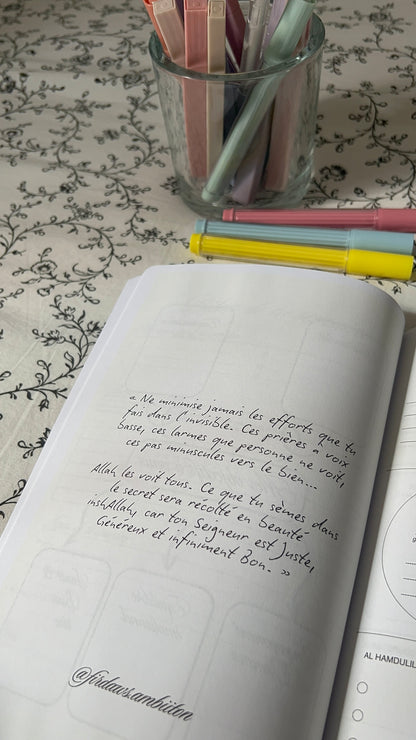 « Ne minimise jamais les efforts que tu
fais dans l'invisible. Ces prières à voix
basse, ces larmes que personne ne voit,
ces pas minuscules vers le bien...
Allah les voit tous. Ce que tu sèmes dans
le secret sera récolté en beauté
inshAllah, car ton Seigneur est Juste,
Généreux et infiniment Bon. »
@firdaws.ambiiton
AL HAMDULIL